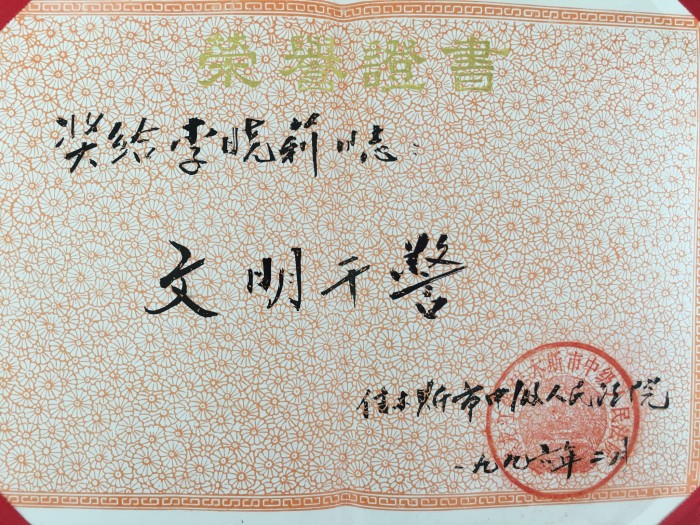 荣誉證書
奖给李晓莉同志:
文明干警
佳木斯市中级人民法院
一九九六年二月
木斯市中级人民